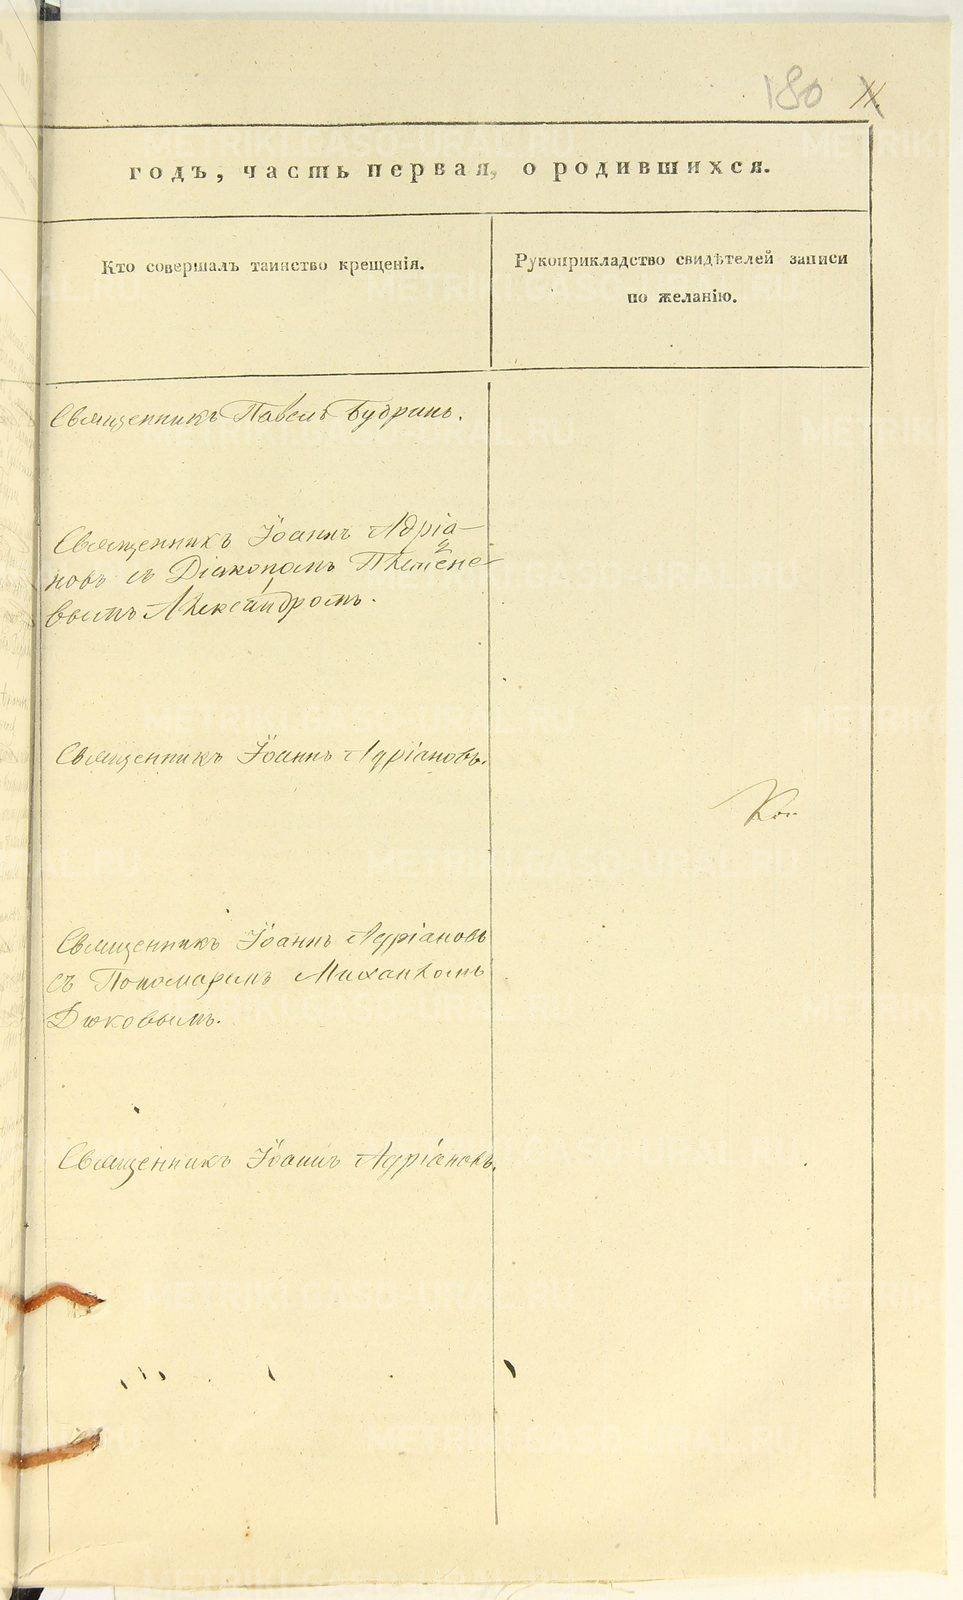 180
годъ, часть первая, о родившихся.
Кто совершалъ таинство крещенія.
Рукоприкладство свидѣтелей записи
по желанію.
Священникъ Павелъ Будринъ.
Священникъ Іоаннъ Адріа-
новъ съ Діакономъ
вымъ Александромъ.
Священникъ Іоаннъ Адріановъ.
Священникъ Іоаннъ Адріановъ
съ Пономаремъ Михаиломъ
Дюковымъ.
Священникъ Іоаннъ Адріановъ.
METRIKI.GASO-URAL.RU